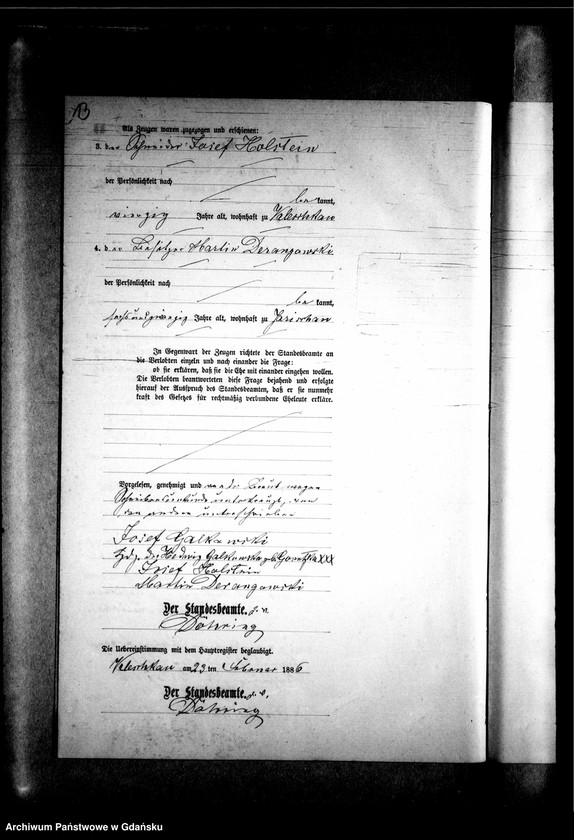 13
Als Zeugen waren zugezogen und erschienen:
3. der Schneider Josef Holstein
der Persönlichkeit nach
be kannt,
vierzig Jahre alt, wohnhaft zu
4. der Besitzer Martin Derangowski
der Persönlichkeit nach
be kannt,
sechsundzwanzig Jahre alt, wohnhaft zu Jarischau
In Gegenwart der Zeugen richtete der Standesbeamte an
die Verlobten einzeln und nach einander die Frage:
ob sie erklären, daß sie die Ehe mit einander eingehen wollen.
Die Verlobten beantworteten diese Frage bejahend und erfolgte
hierauf der Ausspruch des Standesbeamten, daß er sie nunmehr
kraft des Gesetzes für rechtmäßig verbundene Eheleute erkläre.
Vorgelesen, genehmigt und von der Braut wegen
Schreibensunkunde unterkreuzt, von
den andern unterschrieben
Josef Galkowski
Hdz. der Hedwig Galkowska geb. XXX
Josef Holstein
Martin Derangowski
Der Standesbeamte. i. V.
Döhring
Die Uebereinstimmung mit dem Hauptregister beglaubigt.
am 23 ten Februar 1886
Der Standesbeamte. i. V.
Döhring
Archiwum Państwowe w Gdańsku